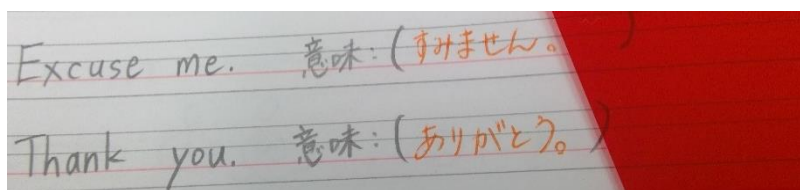 Excuse me. 意味:(すみません。)
Thank you. 意味:(ありがとう。)